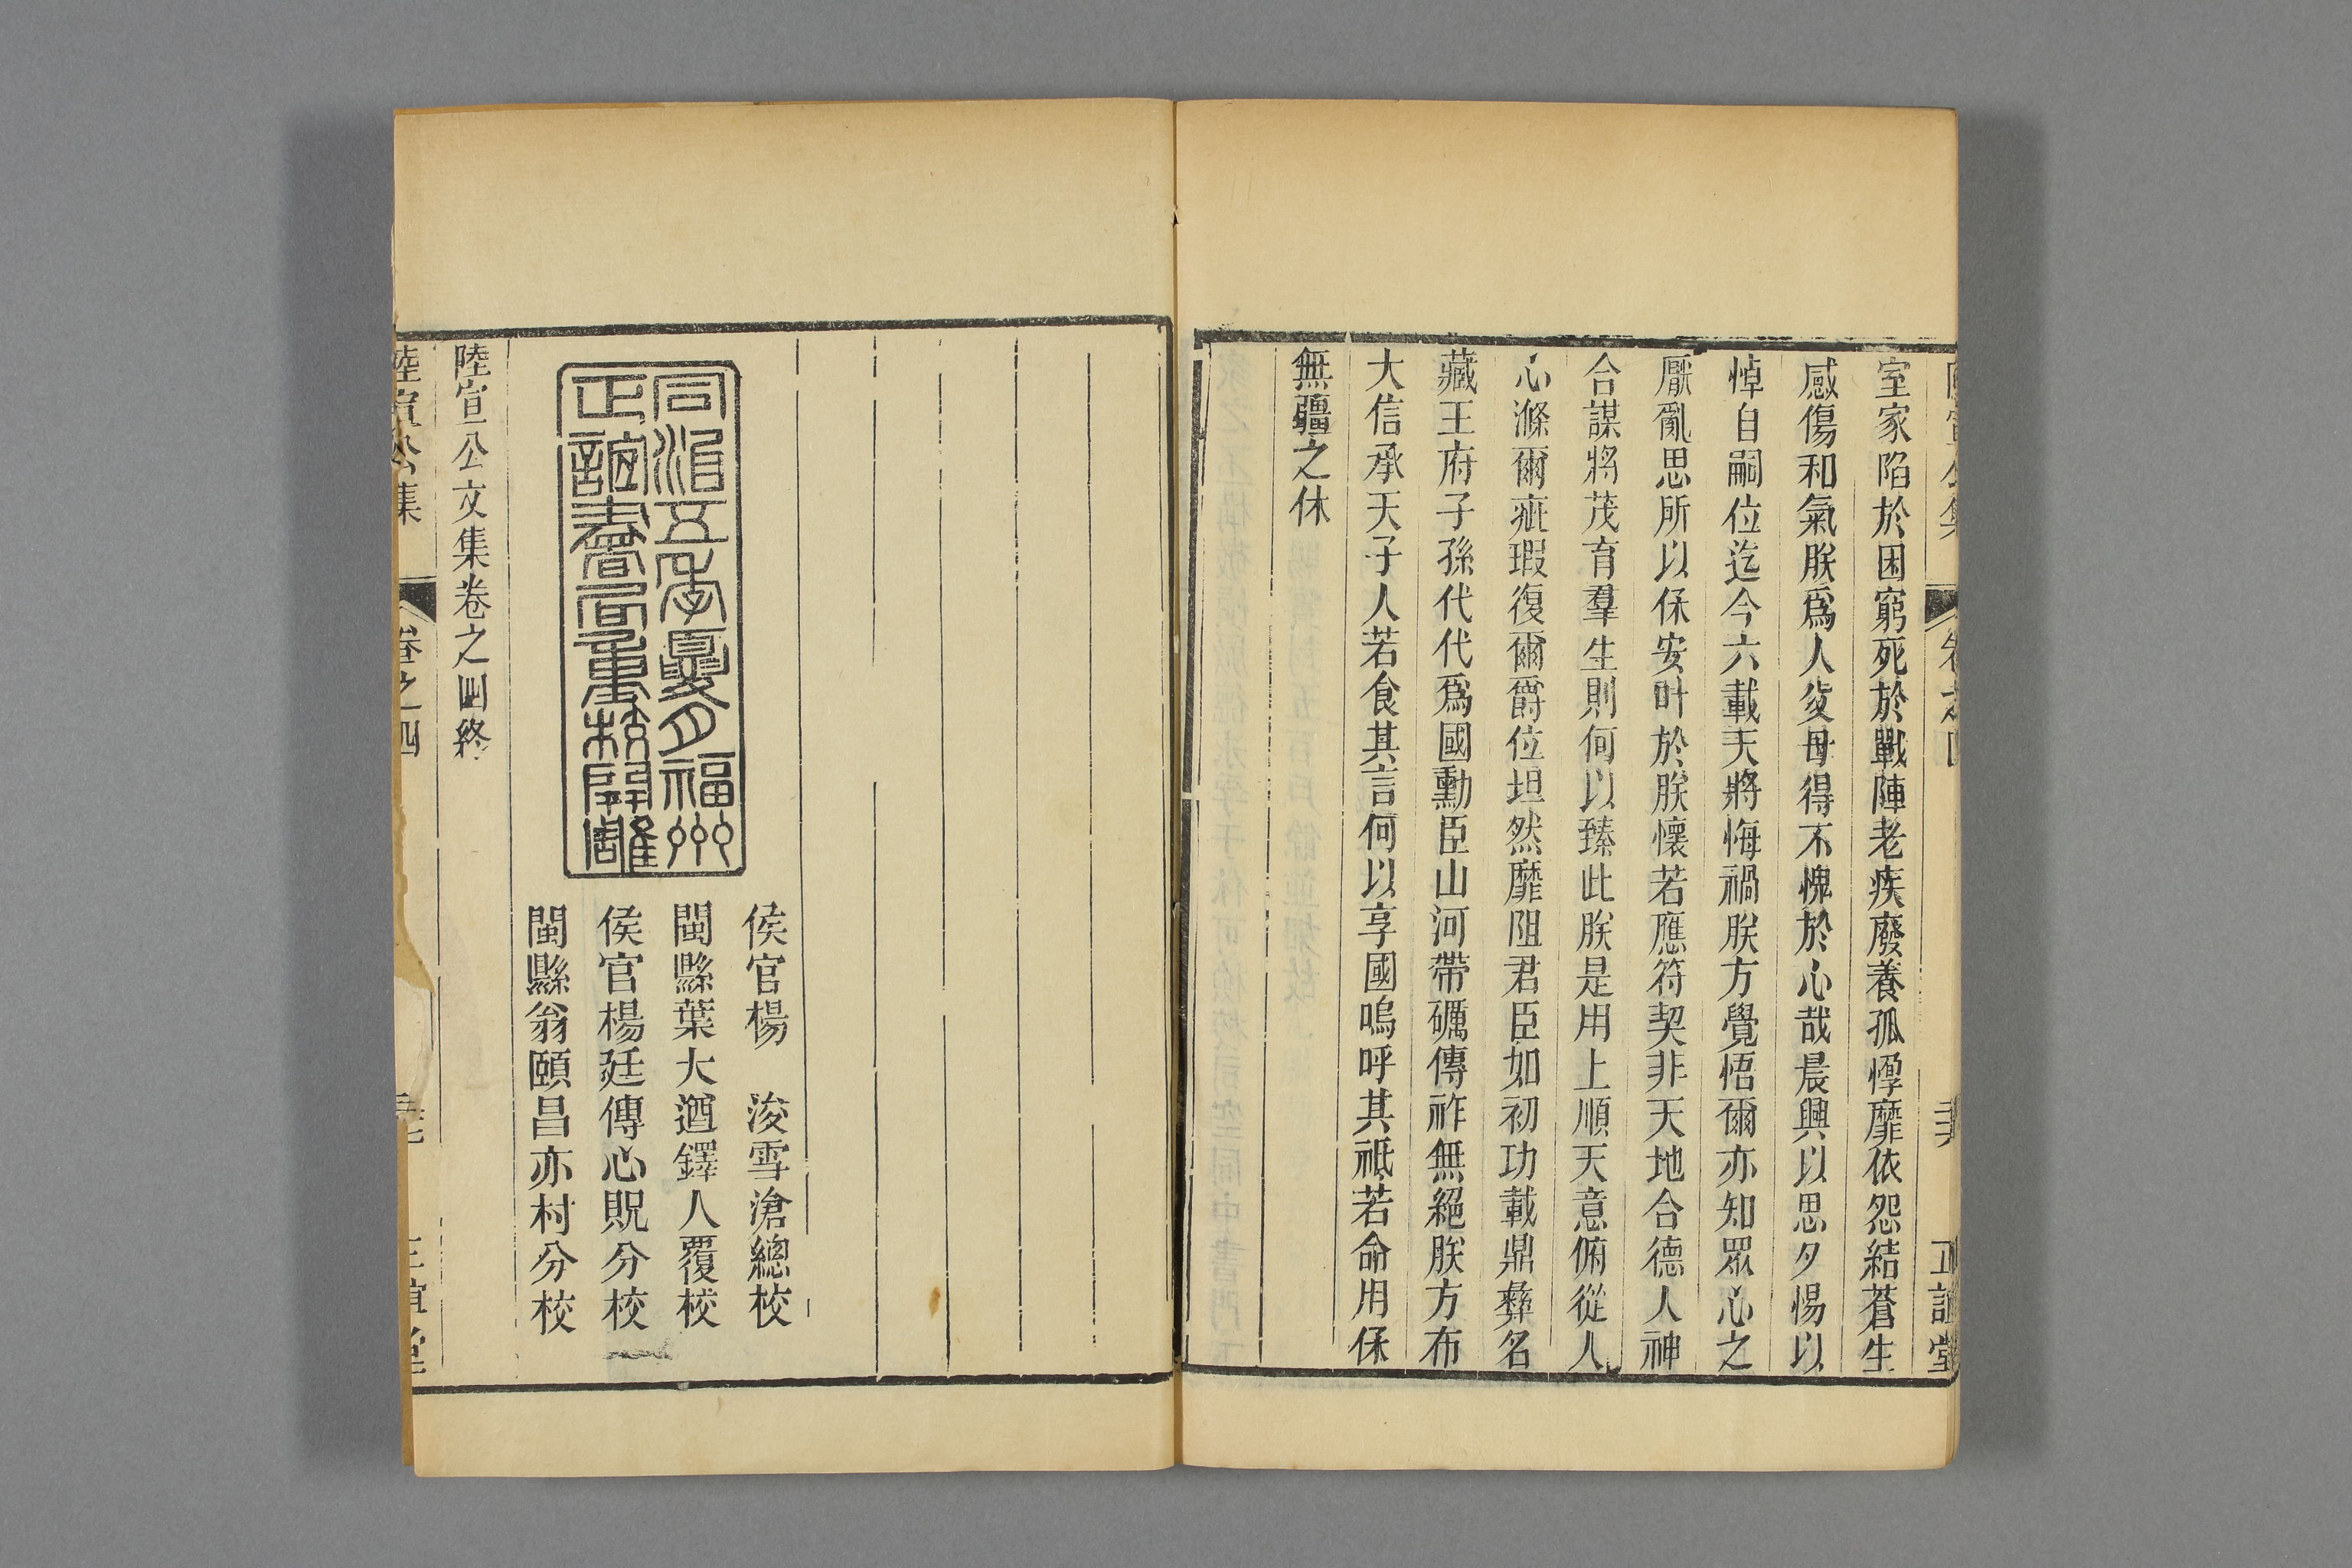 室家陷於困窮死於戰陣老疾廢養孤惸靡依怨結蒼生
感傷和氣朕爲人父母得不愧於心哉晨興以思夕惕以
悼自嗣位迄今六載天將悔禍朕方覺悟爾亦知眾心之
厭亂思所以保安叶於朕懷若應符契非天地合德人神
合謀將茂育羣生則何以臻此朕是用上順天意俯從人
心滌爾疵瑕復爾爵位坦然靡阻君臣如初功載鼎彝名
藏王府子孫代代爲國勳臣山河帶礪傳祚無絕朕方布
大信承天子人若食其言何以享國嗚呼其祗若命用保
無疆之休
同治五年夏月福州
正誼書局重校開雕
侯官楊　浚雪滄總校
閩縣葉大遒鐸人覆校
侯官楊廷傳心貺分校
閩縣翁頤昌亦村分校
陸宣公文集卷之四終
陸宣公集
卷之四